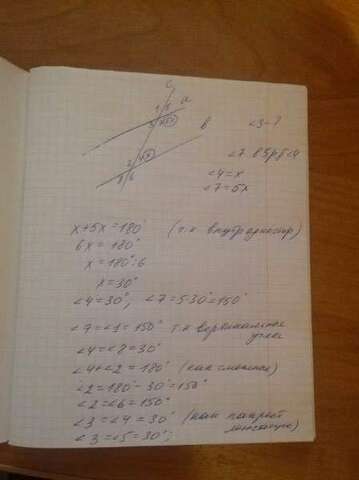 c
1 5 a
b
∠3-?
3 7 5x
∠7 в 5 р б ∠4
2 4 x
∠4=x
8 6
∠7=5x
x+5x=180° (т.к внутр одностор)
6x=180°
x=180°:6
x=30°
∠4=30°, ∠7=5·30°=150°
∠7=∠1=150° т.к вертикальные углы
∠4=∠8=30°
∠4+∠2=180° (как смежные)
∠2=180°-30°=150°
∠2=∠6=150°
∠3=∠4=30° (как накрест лежащие)
∠3=∠5=30°;